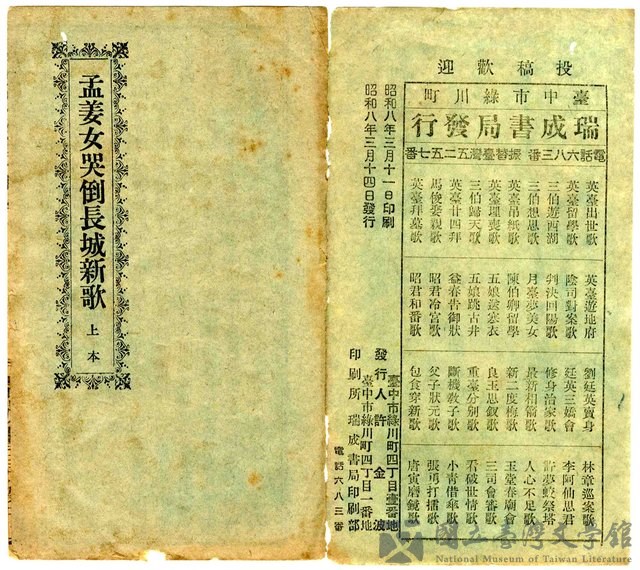 孟姜女哭倒長城新歌 上本
迎歡稿投
臺中市綠川町
瑞成書局發行
電話六八三番 振替臺灣五二五七番
英臺出世歌
英臺留學歌
三伯遊西湖
三伯想思歌
英臺吊紙歌
英臺埋喪歌
三伯歸天歌
英臺廿四拜
馬俊娶親歌
英臺拜墓歌
英臺遊地府
陰司對案歌
判決回陽歌
月臺夢美女
陳伯卿留學
五娘送寒衣
五娘跳古井
益春告御狀
昭君冷宮歌
昭君和番歌
劉廷英賣身
廷英三嬌會
修身治家歌
最新相箭歌
新二度梅歌
良玉思釵歌
重臺分別歌
斷機教子歌
父子狀元歌
包食穿新歌
林章巡案歌
李阿仙思君
許夢蛟祭塔
人心不足歌
玉堂春廟會
三司會審歌
看破世情歌
小青借傘歌
張勇打擂歌
唐寅磨鏡歌
昭和八年三月十一日印刷
昭和八年三月十四日發行
臺中市綠川町四丁目壹番地
發行人 許金波
臺中市綠川町四丁目一番地
印刷所 瑞成書局印刷部
電話六八三番
國立臺灣文學館
National Museum of Taiwan Literature